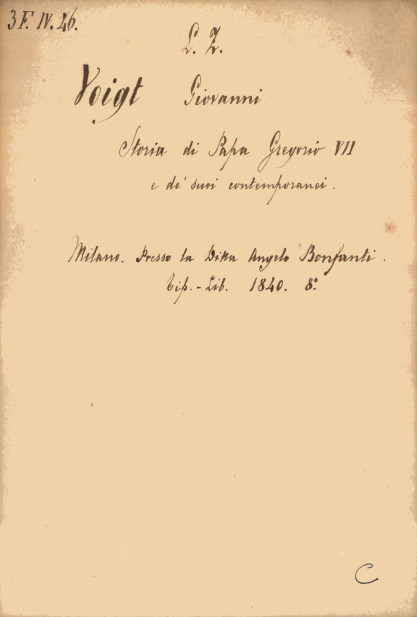 3 F. IV. 46.
L. Z.
Voigt Giovanni
Storia di Papa Gregorio VII
e de' suoi contemporanei.
Milano. Presso la Ditta Angelo Bonfanti.
Tip. - Lib. 1840. 8.°
C